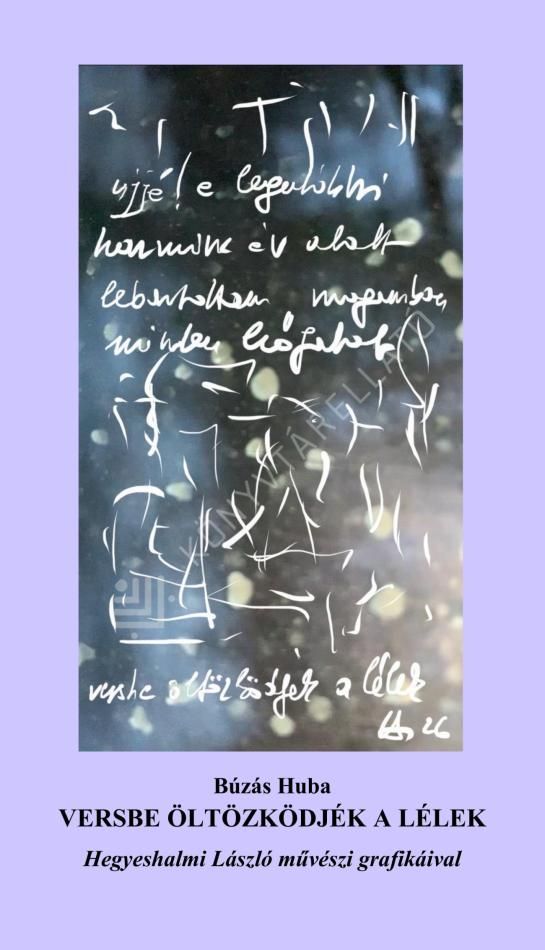 ujjé! e legutóbbi
harminc év alatt
lebontottam magamban
minden
KÖNYVTÁRELLÁTÓ
versbe öltözködjék a lélek
26
Búzás Huba
VERSBE ÖLTÖZKÖDJÉK A LÉLEK
Hegyeshalmi László művészi grafikáival